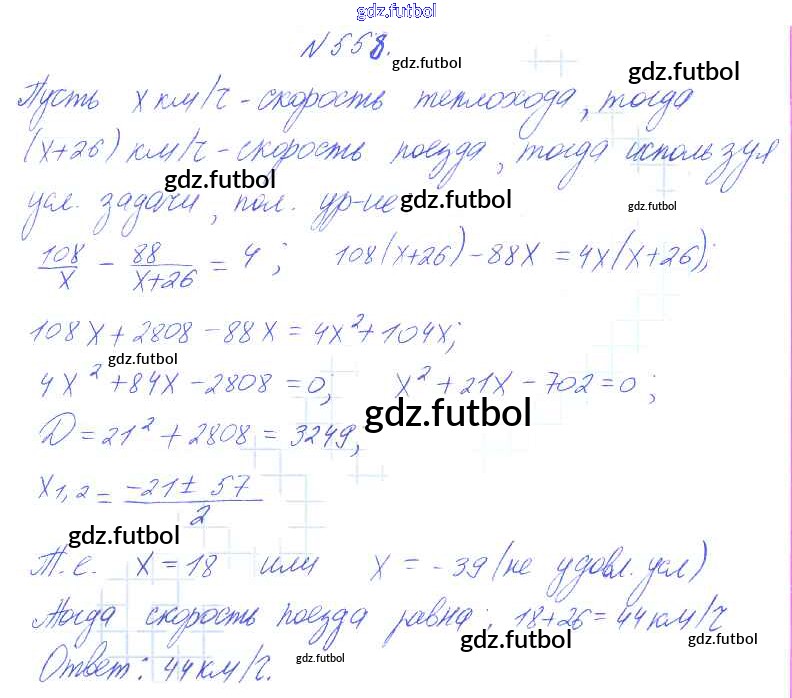 gdz.futbol
N 558.
gdz.futbol
gdz.futbol
Пусть x км/ч - скорость теплохода, тогда
(x+26) км/ч - скорость поезда, тогда используя
gdz.futbol
усл. задачи, пол. ур-ие
gdz.futbol
gdz.futbol
108/x - 88/(x+26) = 4; 108(x+26) - 88x = 4x(x+26);
108x + 2808 - 88x = 4x² + 104x;
gdz.futbol
4x² + 84x - 2808 = 0; x² + 21x - 702 = 0;
gdz.futbol
D = 21² + 2808 = 3249,
x1,2 = (-21 ± 57)/2
gdz.futbol
Т.е. x = 18 или x = -39 (не удовл. усл)
Тогда скорость поезда равна: 18+26 = 44 км/ч
gdz.futbol
gdz.futbol
Ответ: 44 км/ч.
gdz.futbol